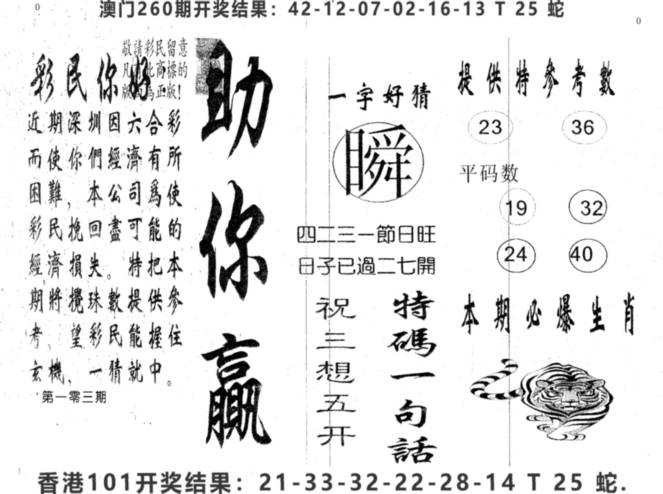 澳门260期开奖结果：42-12-07-02-16-13 T 25 蛇
彩民你好
敬請彩民留意
近期深圳因六合彩
而使你們經濟有所
困難，本公司爲使
彩民挽回盡可能的
經濟損失。特把本
期將攪珠數提供參
考，望彩民能握住
玄機，一猜就中。
第一零三期
助你贏
一字好猜
瞬
四二三一節日旺
日子已過二七開
特碼一句話
祝三想五开
提供特參考數
23 36
平码数
19 32
24 40
本期必爆生肖
香港101开奖结果：21-33-32-22-28-14 T 25 蛇.